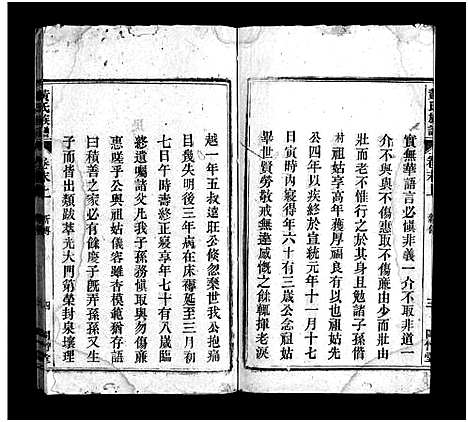 黃氏族譜
卷末上
三
實無華語言必慎非義一介不取非道一
介不與與不傷惠取不傷廉由少而壯由
壯而老不惟行之於己兼以教之於家也
祖姑享高年獲厚福良有以也祖姑先
公四年以疾終於宣統元年十一月十七
日其時內寢得年六十有三歲公念祖姑
畢世賢勞敬戒無違感慨之餘輒揮老淚
越一年五叔遠旺公倏忽棄世我公抱痛
日幾失明後三年病在床褥延至三月初
七日午時壽終正寢享年七十有八歲臨
終遺囑諸父凡我子孫務慎取與勿傷廉
嗟乎公與祖姑儀容雖杳模範猶存語
曰積善之家必有餘慶子旣弄孫孫又生
子而皆出類跋萃光大門第榮封泉壤理
黃氏族譜
卷末上
新傳
四